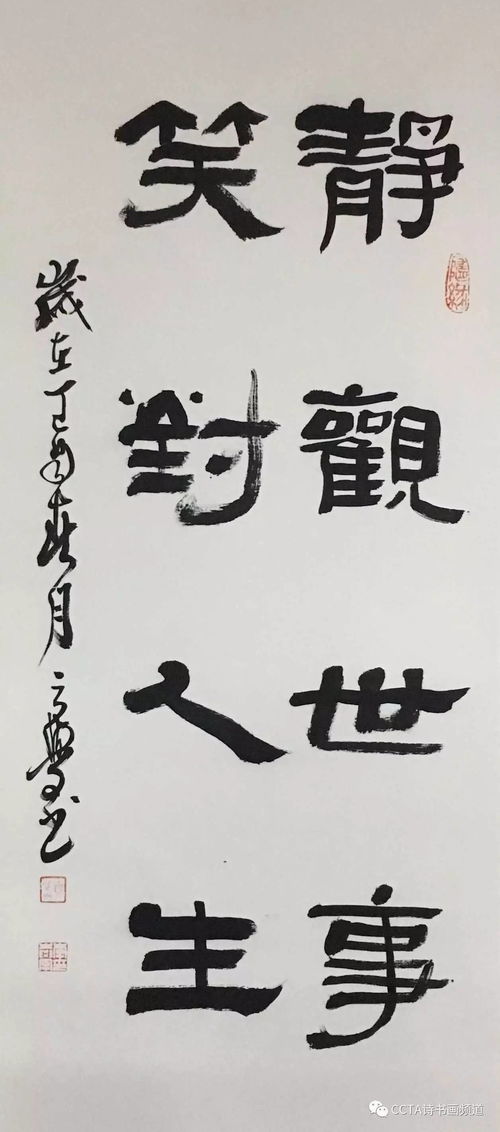 靜觀世事
笑對人生
歲在丁酉春月
书
CCTA诗书画频道